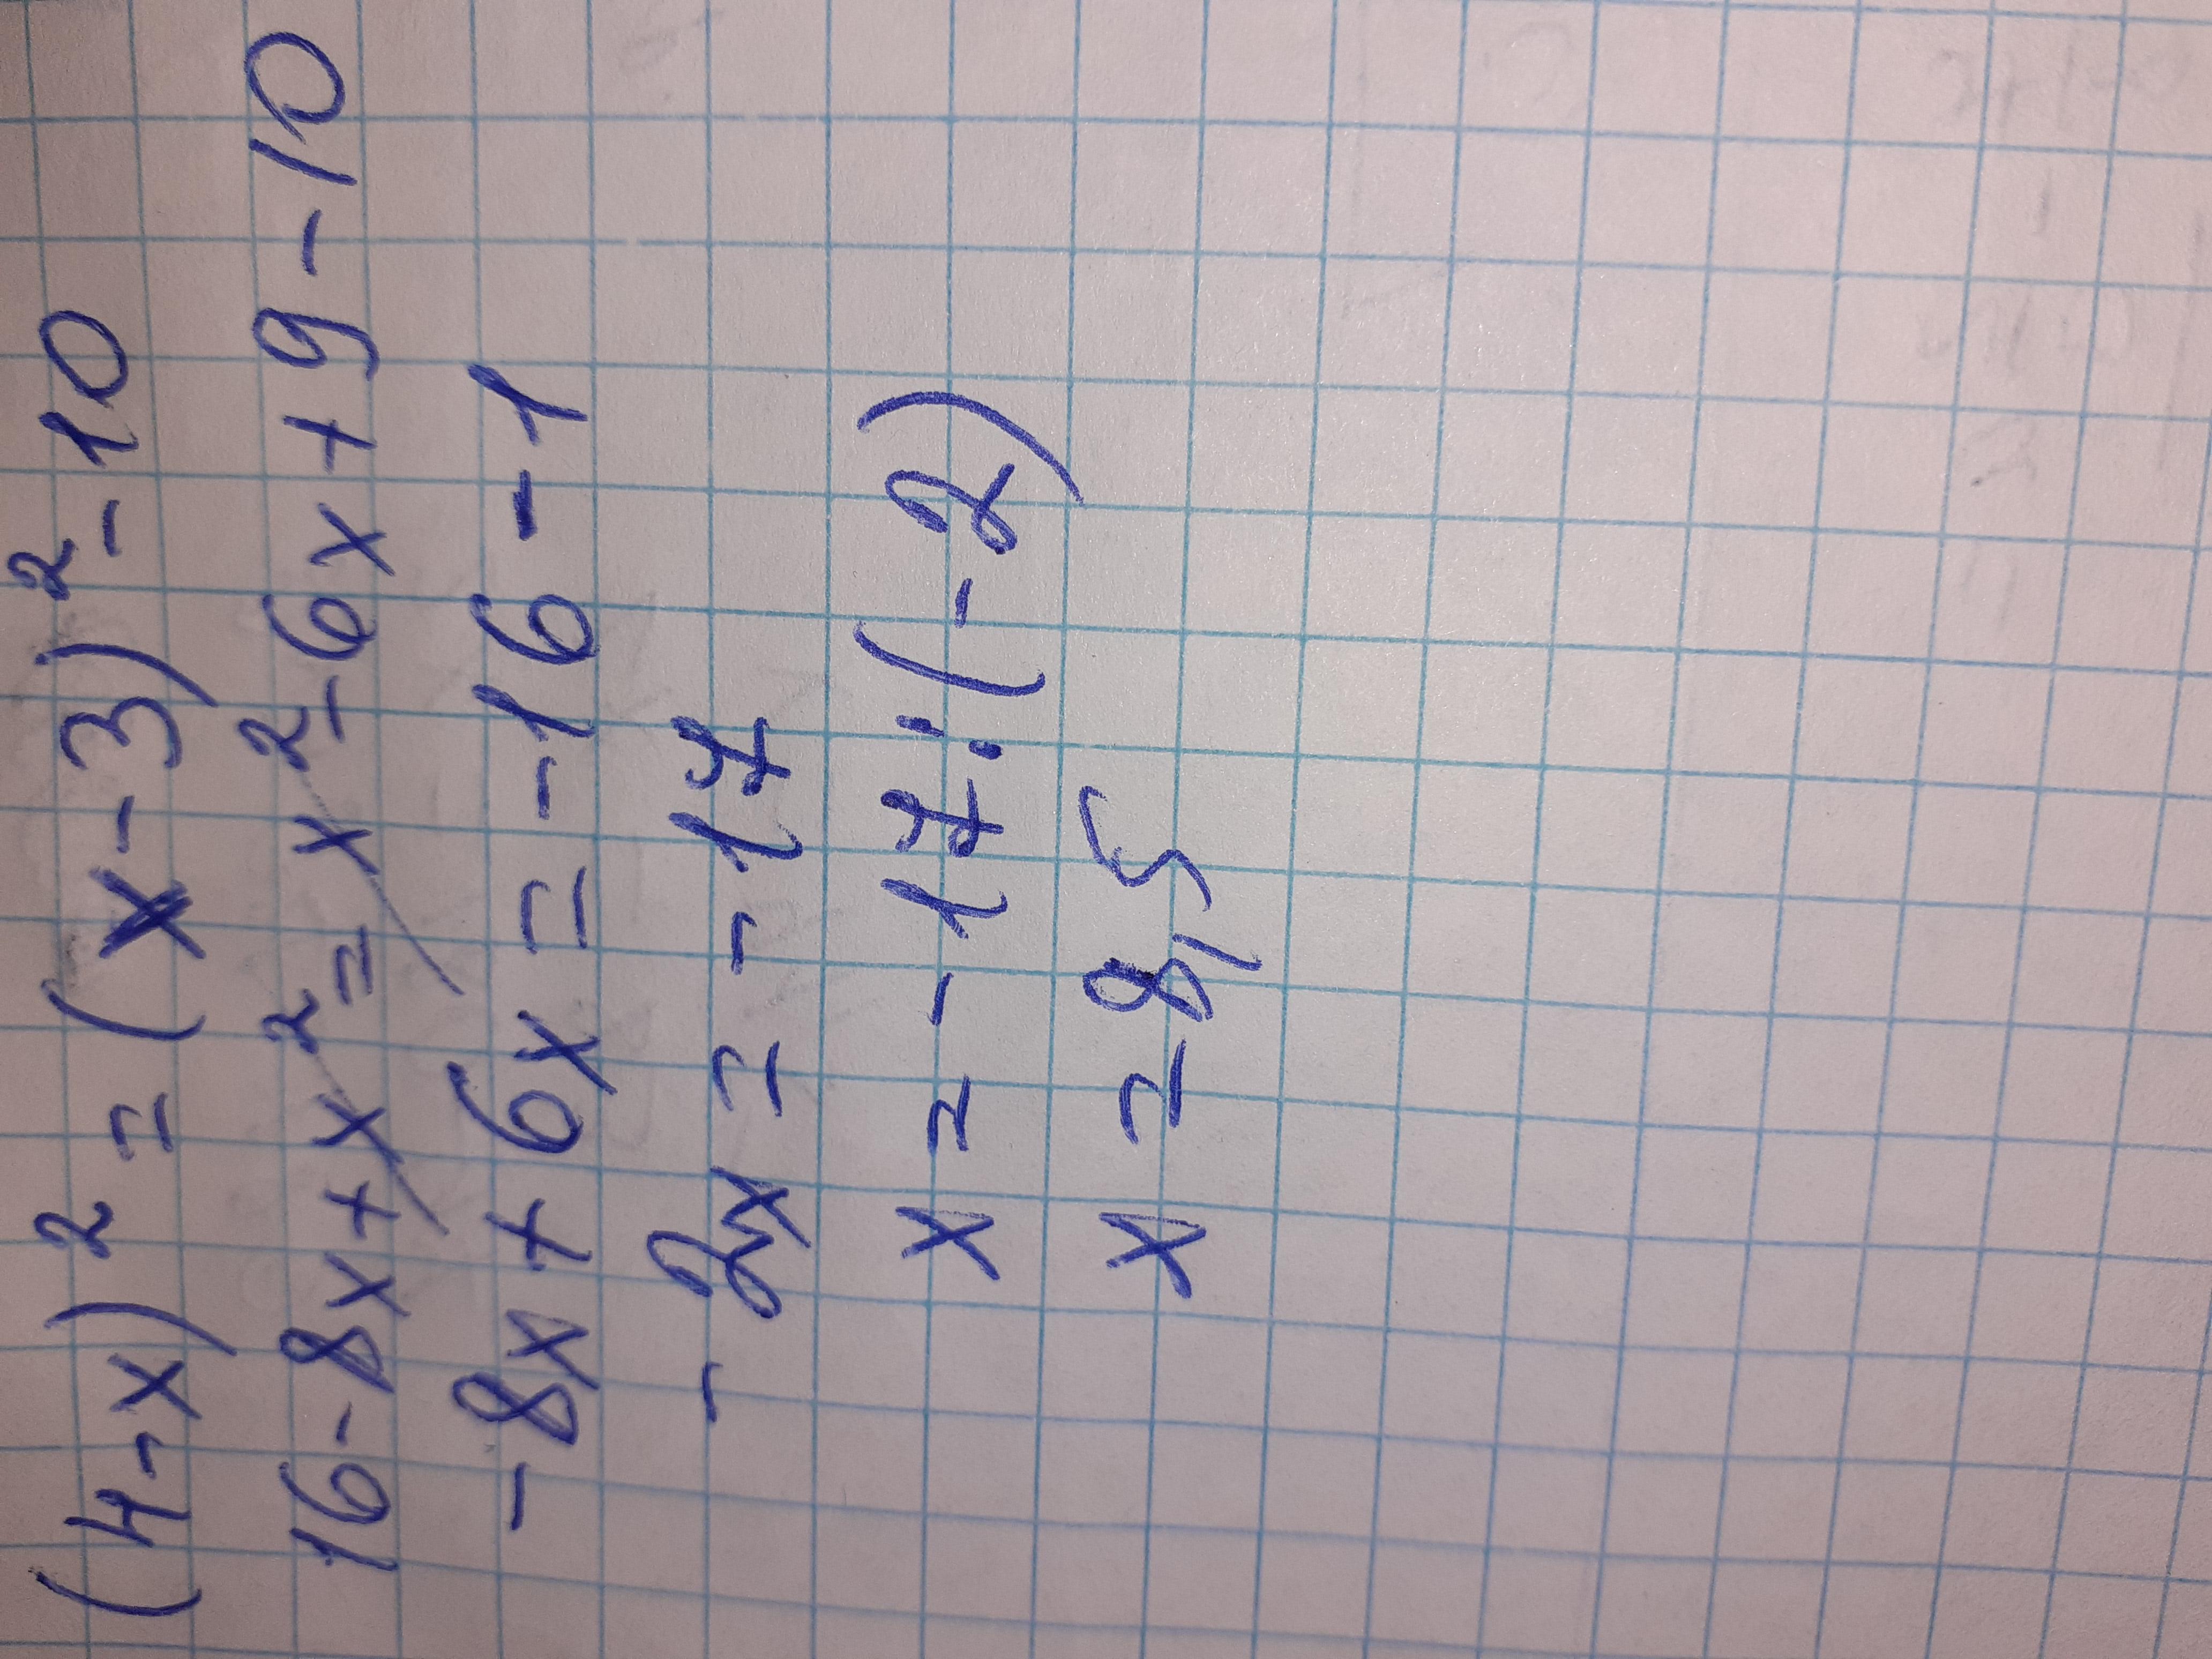 (4-x)² = (x-3)²-10
16-8x+x²=x²-6x+9-10
-8x+6x=-16-1
-2x=-17
x=-17:(-2)
x=8,5